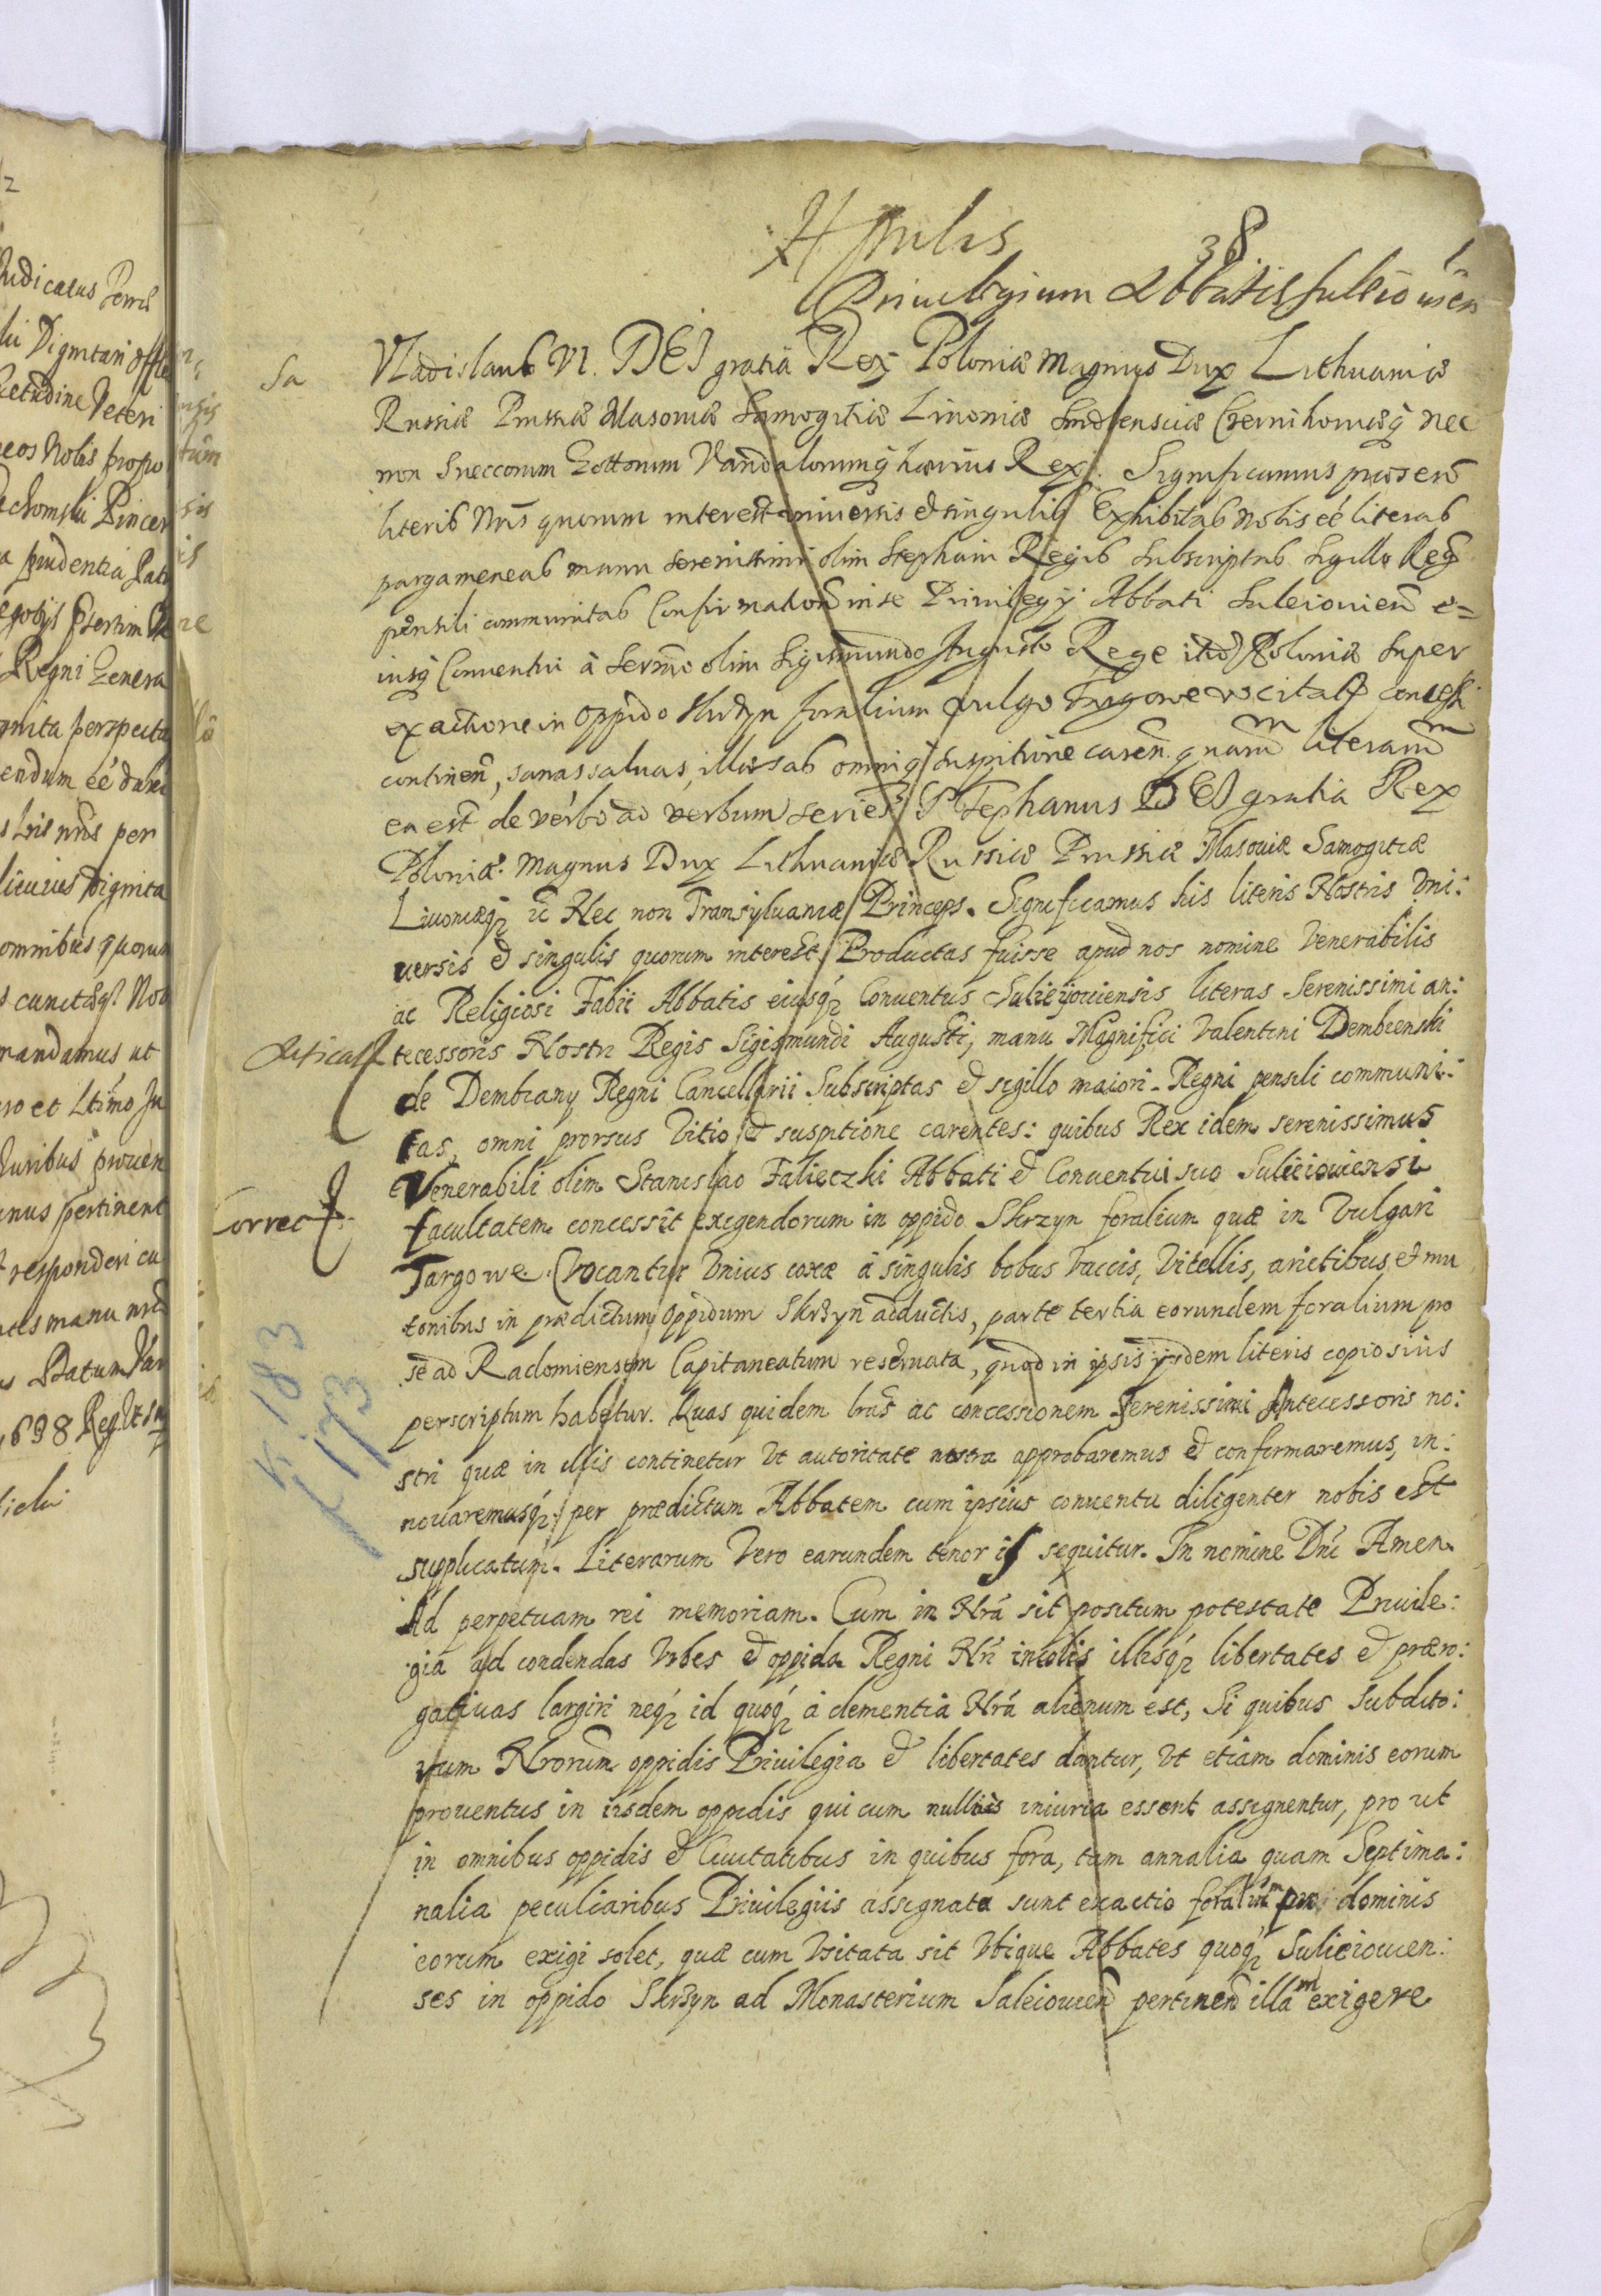 38
Priuilegium Abbatis Suleiouien
Sa
Vladislaus VI. DEI gratia Rex Poloniæ Magnus Dux Lithuaniæ
Russiæ Prussiæ Masouiæ Samogitiæ Liuoniæ Smolensciæ Czernihouiæq nec
non Sueccorum Gottorum Vandalorumq hærius Rex. Significamus præsen
literis Nris quorum interest vniuersis et singulis Exhibitas Nobis eé literas
pargameneas manu Serenissimi olim Stephani Regis subscriptas sigillo Regn
pensili communitas Confirmationem in se Priuilegÿ Abbati Suleiouien e=
iusq Conuentui à Sermo olim Sigismundo Augusto Rege Poloniæ super
exactione in oppido Skrzyn foralium vulgo Targowe vocitat concessi
continen, sanas saluas, illæsas omniq suspitione caren. quarum literarum
ea est de verbo ad verbum series. Stephanus DEI gratia Rex
Poloniæ. Magnus Dux Lithuaniæ Russiæ Prussiæ Masouiæ Samogitiæ
Liuoniæq etc Nec non Transyluaniæ Princeps. Significamus his literis Nostris Vni:
uersis et singulis quorum interest Productas fuisse apud nos nomine Venerabilis
ac Religiosi Fabii Abbatis eiusq Conuentus Suliejouiensis literas Serenissimi an:
tecessoris Nostri Regis Sigismundi Augusti, manu Magnifici Valentini Dembienski
de Dembiany Regni Cancellarii Subscriptas et sigillo maiori Regni pensili communi:
tas, omni prorsus Vitio et suspitione carentes: quibus Rex idem serenissimus
Venerabili olim Stanislao Falieczki Abbati et Conuentui suo Suliciouiensi
Correct
facultatem concessit exigendorum in oppido Skrzyn foralium quæ in Vulgari
Targowe Vocantur Vnius coxæ à singulis bobus Vaccis, Vitellis, arietibus et mu
tonibus in prædictum oppidum Skrzyn adductis, parte tertia eorundem foralium pro
se ad Radomiensem Capitaneatum reseruata, quod in ipsis ijsdem literis copiosius
perscriptum habetur. Quas quidem lras ac concessionem Serenissimi Antecessoris no:
stri quæ in illis continetur Vt autoritate nostra approbaremus et confirmaremus, in:
nouaremusq per prædictum Abbatem cum ipsius conuentu diligenter nobis est
supplicatum. Literarum Vero earundem tenor is sequitur. In nomine Dni Amen.
Ad perpetuam rei memoriam. Cum in Nrá sit positum potestate Priuile:
gia ad condendas Vrbes et oppida Regni Nri incolis illisq libertates et præro:
gatiuas largiri neq id quoq à clementia Nrá alienum est, Si quibus Subdito:
rum Nrorum oppidis Priuilegia et libertates dantur, Vt etiam dominis eorum
prouentus in iisdem oppidis qui cum nullius iniuria essent assignentur, pro ut
in omnibus oppidis et Ciuitatibus in quibus fora, tam annalia quam Septima:
nalia peculiaribus Priuilegiis assignata sunt exactio foralium pro dominis
eorum exigi solet, quæ cum Vsitata sit Vbique Abbates quoq Sulieiouien:
ses in oppido Skrzyn ad Monasterium Suleiouien pertinen illam exigere